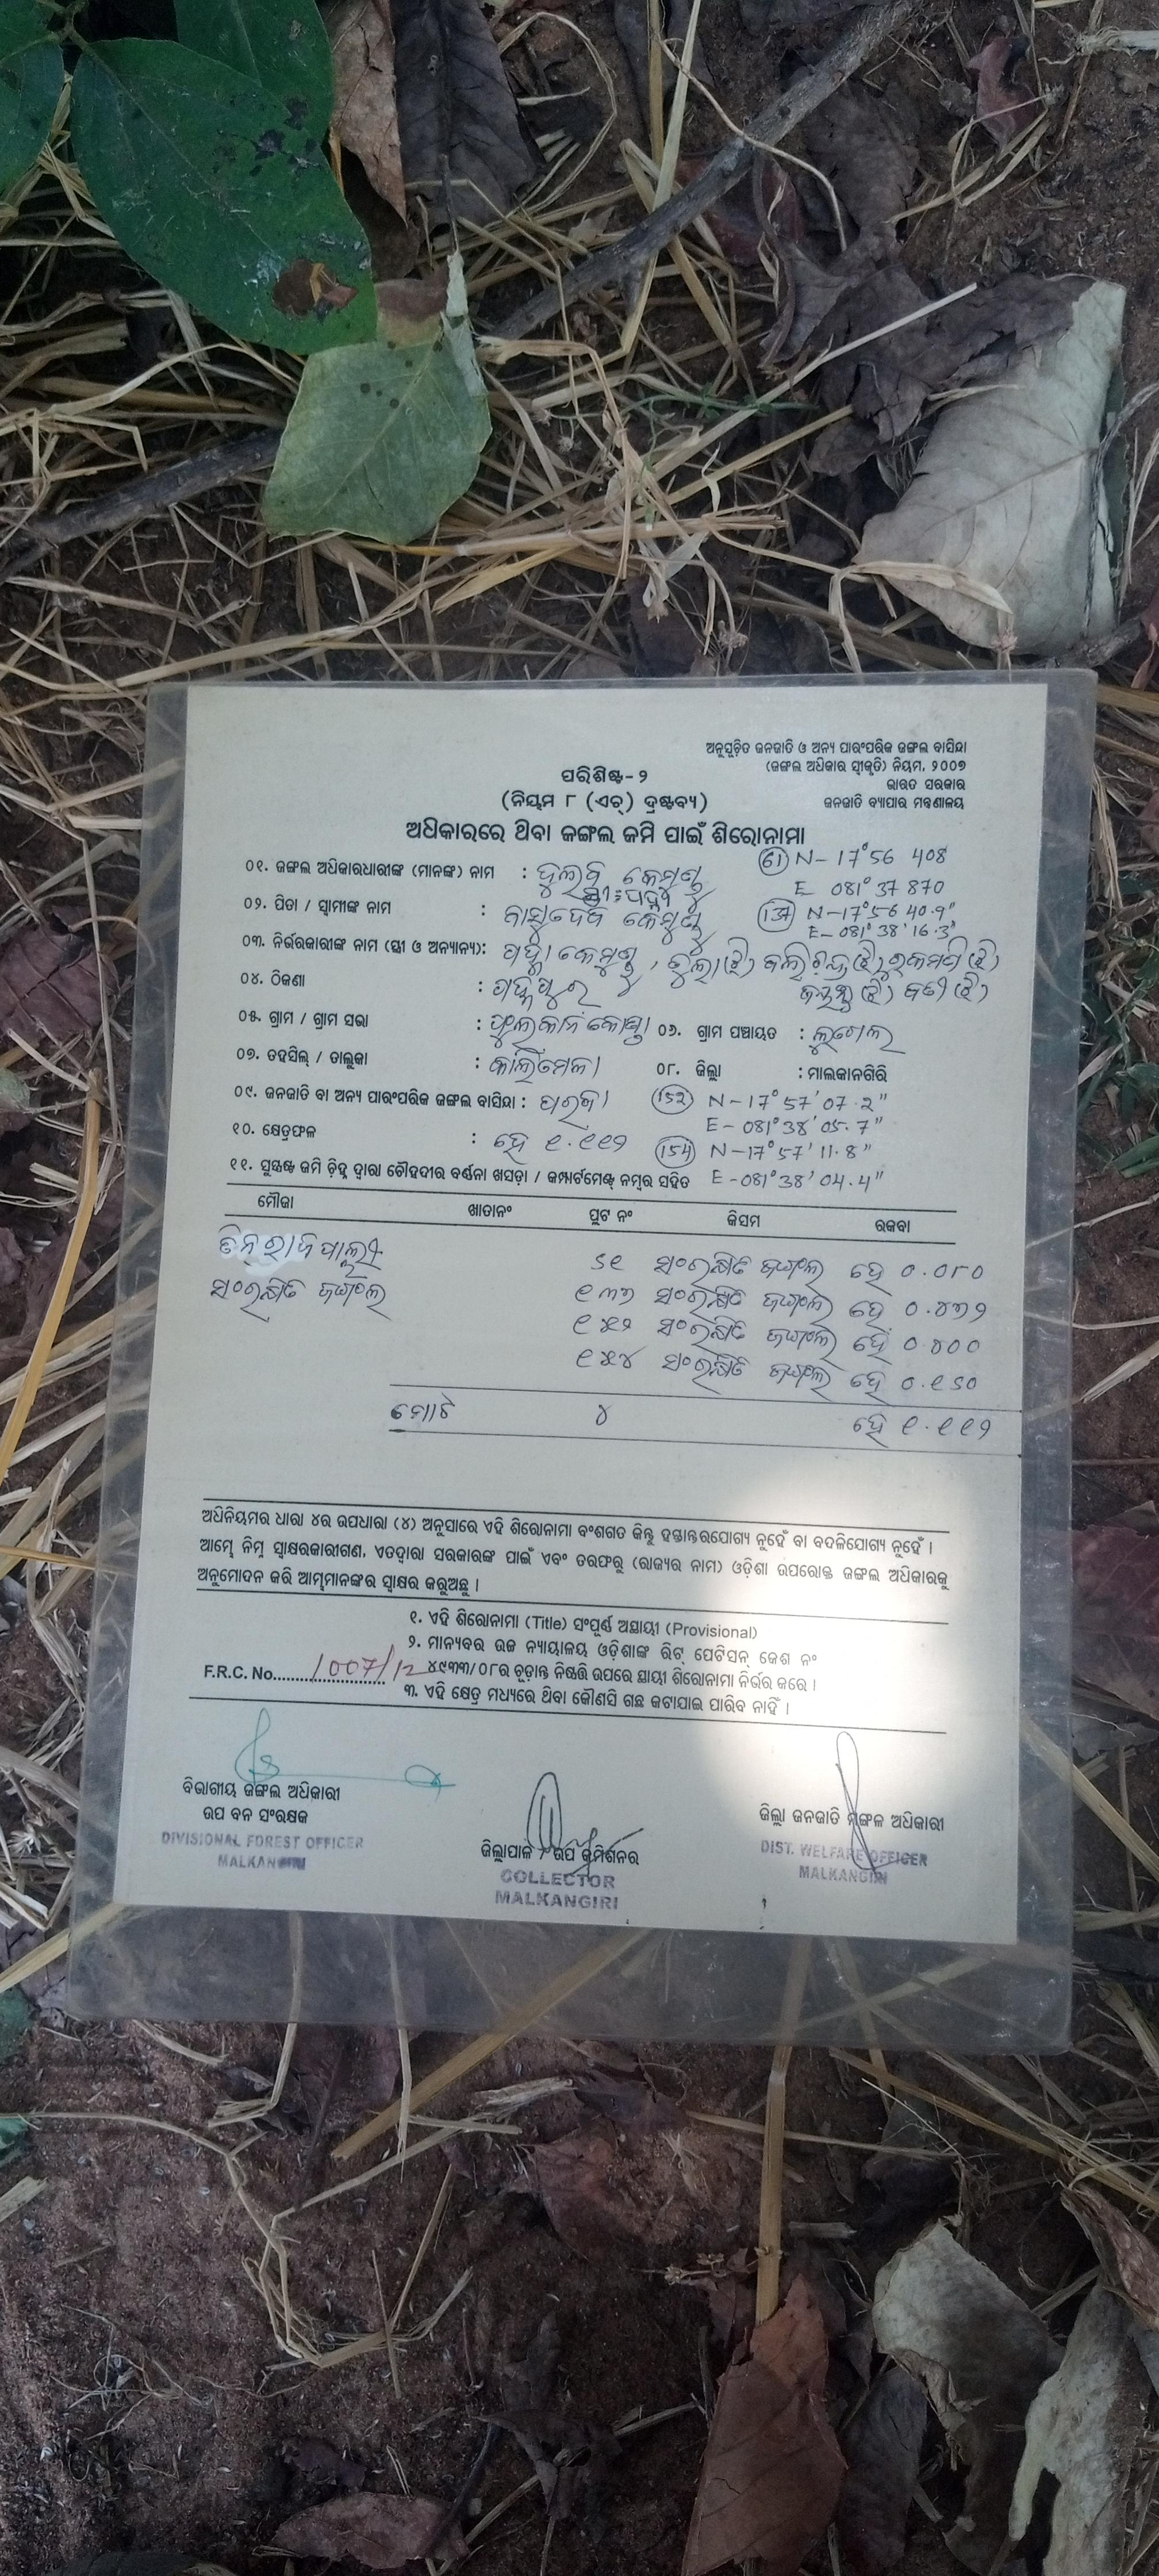 ଅନୁସୂଚିତ ଜନଜାତି ଓ ଅନ୍ୟ ପାରଂପରିକ ଜଙ୍ଗଲ ବାସିନ୍ଦା
(ଜଙ୍ଗଲ ଅଧିକାର ସ୍ୱୀକୃତି) ନିୟମ, ୨୦୦୭
ଭାରତ ସରକାର
ଜନଜାତି ବ୍ୟାପାର ମନ୍ତ୍ରଣାଳୟ
ପରିଶିଷ୍ଟ-୨
(ନିୟମ ୮ (ଏଚ୍) ଦ୍ରଷ୍ଟବ୍ୟ)
ଅଧିକାରରେ ଥିବା ଜଙ୍ଗଲ ଜମି ପାଇଁ ଶିରୋନାମା
(61) N- 17°56 408
E 081°37 870
୦୧. ଜଙ୍ଗଲ ଅଧିକାରଧାରୀଙ୍କ (ମାନଙ୍କ) ନାମ :
(137) N-17°56 40.9"
E-081°38'16.3"
୦୨. ପିତା / ସ୍ୱାମୀଙ୍କ ନାମ :
୦୩. ନିର୍ଭରକାରୀଙ୍କ ନାମ (ସ୍ତ୍ରୀ ଓ ଅନ୍ୟାନ୍ୟ):
୦୪. ଠିକଣା :
୦୫. ଗ୍ରାମ / ଗ୍ରାମ ସଭା : ୦୬. ଗ୍ରାମ ପଞ୍ଚାୟତ :
୦୭. ତହସିଲ୍ / ତାଲୁକା : କାଲିମେଳା ୦୮. ଜିଲ୍ଲା : ମାଲକାନଗିରି
୦୯. ଜନଜାତି ବା ଅନ୍ୟ ପାରଂପରିକ ଜଙ୍ଗଲ ବାସିନ୍ଦା : ପରଜା (152) N-17°57'07.2"
E-081°38'05.7"
୧୦. କ୍ଷେତ୍ରଫଳ : ହେ ୧.୧୧୨ (154) N-17°57'11.8"
E-081°38'04.4"
୧୧. ସୁସ୍ପଷ୍ଟ ଜମି ଚିହ୍ନ ଦ୍ୱାରା ଚୌହଦୀର ବର୍ଣ୍ଣନା ଖସଡ଼ା / କମ୍ପାର୍ଟମେଣ୍ଟ ନମ୍ବର ସହିତ
ମୌଜା ଖାତାନଂ ପ୍ଲଟ ନଂ କିସମ ରକବା
୬୧ ସଂରକ୍ଷିତ ଜଙ୍ଗଲ ହେ ୦.୦୮୦
ସଂରକ୍ଷିତ ଜଙ୍ଗଲ ୧୩୭ ସଂରକ୍ଷିତ ଜଙ୍ଗଲ ହେ ୦.୪୭୨
୧୫୨ ସଂରକ୍ଷିତ ଜଙ୍ଗଲ ହେ ୦.୪୦୦
୧୫୪ ସଂରକ୍ଷିତ ଜଙ୍ଗଲ ହେ ୦.୧୬୦
ମୋଟ ୪ ହେ ୧.୧୧୨
ଅଧିନିୟମର ଧାରା ୪ର ଉପଧାରା (୪) ଅନୁସାରେ ଏହି ଶିରୋନାମା ବଂଶଗତ କିନ୍ତୁ ହସ୍ତାନ୍ତରଯୋଗ୍ୟ ନୁହେଁ ବା ବଦଳିଯୋଗ୍ୟ ନୁହେଁ ।
ଆମ୍ଭେ ନିମ୍ନ ସ୍ୱାକ୍ଷରକାରୀଗଣ, ଏତଦ୍ୱାରା ସରକାରଙ୍କ ପାଇଁ ଏବଂ ତରଫରୁ (ରାଜ୍ୟର ନାମ) ଓଡ଼ିଶା ଉପରୋକ୍ତ ଜଙ୍ଗଲ ଅଧିକାରକୁ
ଅନୁମୋଦନ କରି ଆମ୍ଭମାନଙ୍କର ସ୍ୱାକ୍ଷର କରୁଅଛୁ ।
୧. ଏହି ଶିରୋନାମା (Title) ସଂପୂର୍ଣ୍ଣ ଅସ୍ଥାୟୀ (Provisional)
୨. ମାନ୍ୟବର ଉଚ୍ଚ ନ୍ୟାୟାଳୟ ଓଡ଼ିଶାଙ୍କ ରିଟ୍ ପେଟିସନ୍ କେଶ ନଂ
F.R.C. No. 1007/12 ୪୯୩୩/୦୮ର ଚୂଡ଼ାନ୍ତ ନିଷ୍ପତ୍ତି ଉପରେ ସ୍ଥାୟୀ ଶିରୋନାମା ନିର୍ଭର କରେ ।
୩. ଏହି କ୍ଷେତ୍ର ମଧ୍ୟରେ ଥିବା କୌଣସି ଗଛ କଟାଯାଇ ପାରିବ ନାହିଁ ।
ବିଭାଗୀୟ ଜଙ୍ଗଲ ଅଧିକାରୀ
ଉପ ବନ ସଂରକ୍ଷକ
DIVISIONAL FOREST OFFICER
MALKANGIRI
ଜିଲ୍ଲାପାଳ / ଉପ କମିଶନର
COLLECTOR
MALKANGIRI
ଜିଲ୍ଲା ଜନଜାତି ମଙ୍ଗଳ ଅଧିକାରୀ
DIST. WELFARE OFFICER
MALKANGIRI